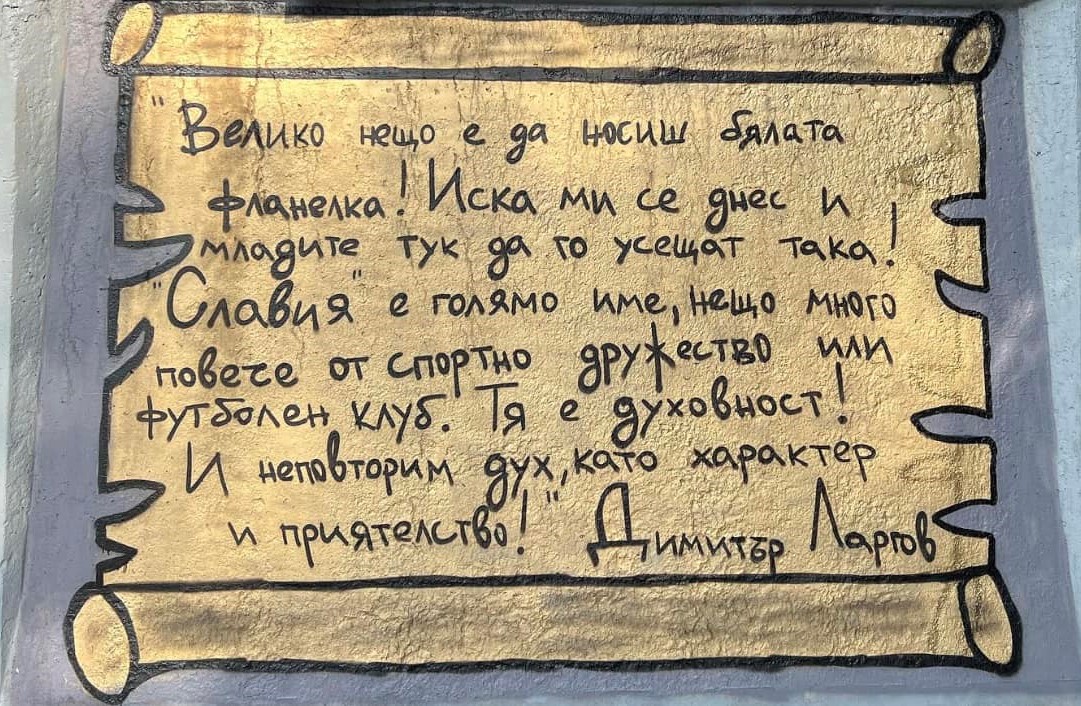 "Велико нещо е да носиш бялата
фланелка! Иска ми се днес и
младите тук да го усещат така!
"Славия" е голямо име, нещо много
повече от спортно дружество или
футболен клуб. Тя е духовност!
И неповторим дух, като характер
и приятелство!" Димитър Ларгов